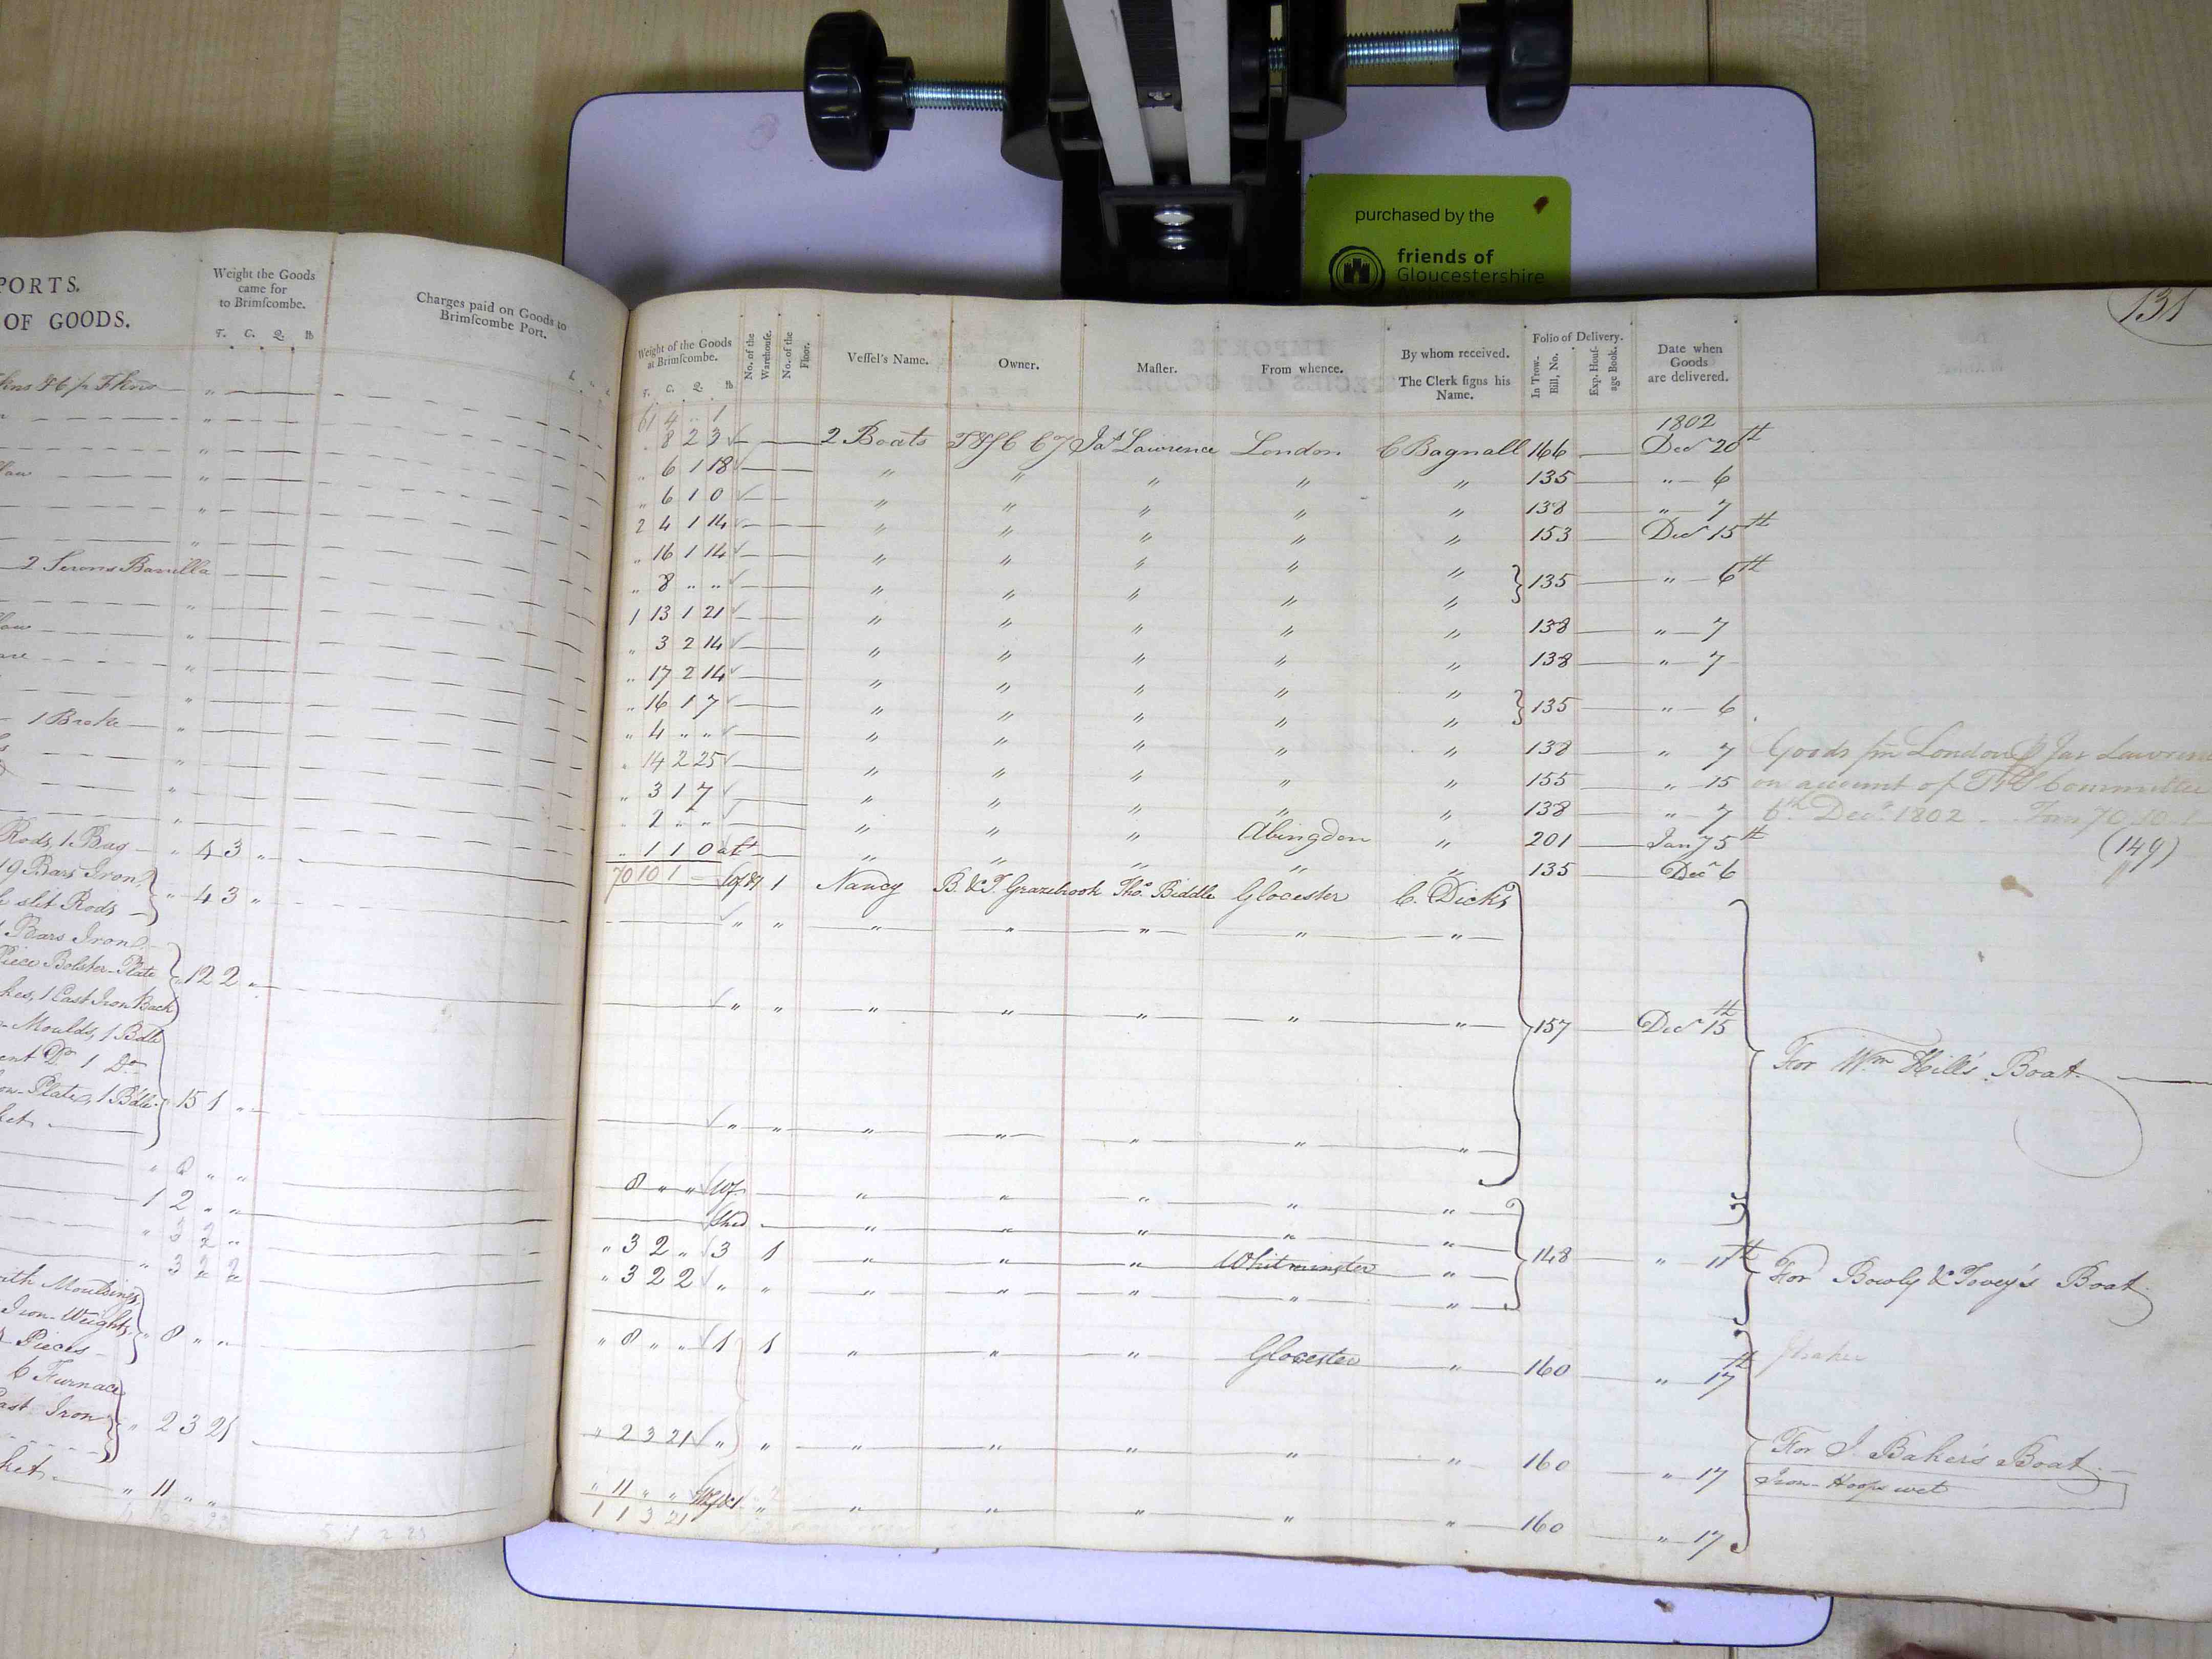 purchased by the
friends of
Gloucestershire
PORTS.
OF GOODS.
Weight the Goods
came for
to Brimſcombe.
T. C. Q. lb
Charges paid on Goods to
Brimſcombe Port.
2 Serons Barrilla
1 Broke
Rods, 1 Bag " 4 3 "
19 Bars Iron
slit Rods " 4 3 "
Bars Iron
Piece Bolster-Plate
1 Cast Iron Back " 12 2 "
Moulds, 1 Bdle
Do 1 Do
Plate, 1 Bdle 15 1 "
" 8 " "
1 2 " "
" 3 2 "
" 3 2 2
with Mouldings
Iron-Weights " 8 " "
Pieces
6 Furnace
Cast Iron " 2 3 21
" 11 " "
131
Weight of the Goods
at Brimſcombe.
T. C. Q. lb
No. of the
Warehouſe.
No. of the
Floor.
Veſſel's Name.
Owner.
Maſter.
From whence.
By whom received.
The Clerk ſigns his
Name.
Folio of Delivery.
In Trow-
Bill, No.
Exp. Houſ-
age Book.
Date when
Goods
are delivered.
61 4 .. 1
1802
" 8 2 3 2 Boats Jas Lawrence London C Bagnall 166 Decr 20th
" 6 1 18 " " " " " 135 " 6
" 6 1 0 " " " " " 138 " 7
2 4 1 14 " " " " " 153 Decr 15th
" 16 1 14 " " " " "
" 8 " " " " " " " 135 " 6th
1 13 1 21 " " " " " 138 " 7
" 3 2 14 " " " " " 138 " 7
" 17 2 14 " " " " "
" 16 1 7 " " " " " 135 " 6
" 4 " " " " " " " 138 " 7
" 14 2 25 " " " " " 155 " 15
" 3 1 7 " " " " " 138 " 7
" 2 " " " " " Abingdon " 201 Jany 5th
" 1 1 0 " " " " " 135 Decr 6
Goods fm London Jas Lawrence
on account of Committee
6th Decr 1802 70 10 1
(149)
70 10 1 1 Nancy B. & T. Grazebrook Thos. Biddle Glocester C. Dicks
" " " " " " "
" " " " " " " 157 Decr 15th
For Wm Hill's Boat
" " " " " " "
8 " " Wf " " " " "
Shed " " " " "
" 3 2 " 3 1 " " " Whitminster " 148 " 11th
For Bowly & Tovey's Boat
" 3 2 2 " " " " " " "
" 8 " " 1 1 " " " Glocester " 160 " 17th
" 2 3 21 " " " " " " " 160 " 17
For J. Baker's Boat
Iron-Hoops wet
" 11 " " " " " " " " 160 " 17
1 1 3 21